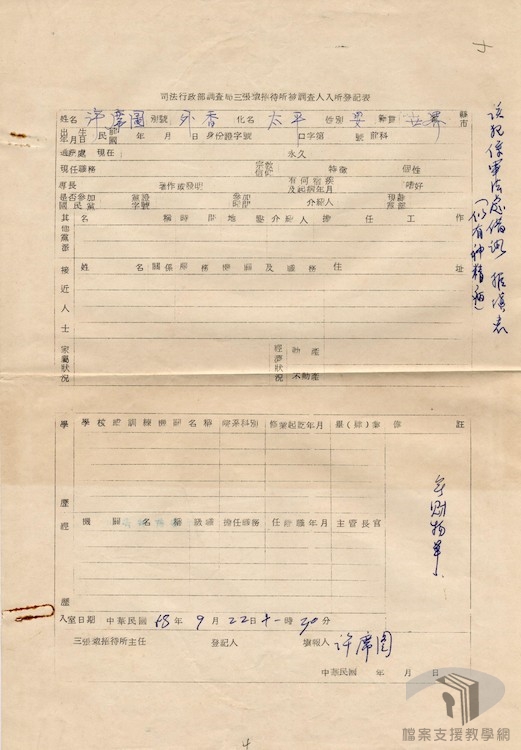 司法行政部調查局三張犁招待所被調查人入所登記表
姓名 許席圖 別號 外香 化名 太平 性別 男 籍貫 世界 縣市
出生年月日 民前國 年 月 日 身份證字號 口字第 號 診斷科
通訊處 現在 永久
現任職務 宗教信仰 特徵 個性
專長 著作或發明 有何宿疾及起居年月 嗜好
是否參加國民黨 黨證字號 介紹人
其他黨派 名稱 時間 地點 介紹人 擔任工作
接近人士 姓名 關係 職務 機關及職務 住址
家屬狀況 經濟狀況 動產
不動產
該犯係軍法處借訊
(似有神精病)
學歷 學校或訓練機關名稱 院系科別 修業起訖年月 畢(結)業 備註
無財物單
經歷 機關名稱 職級 擔任職務 任離職年月 主管長官
入室日期 中華民國 58 年 9 月 22 日 十一 時 30 分
三張犁招待所主任 登記人 填報人 許席圖
中華民國 年 月 日
檔案支援教學網
4